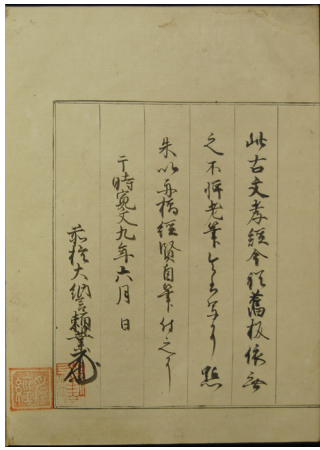 此古文孝經全経舊板依無
之不憚老筆令書写了點
朱以舟橋経賢自筆付之了
于時寛文九年六月 日
前権大納言頼業